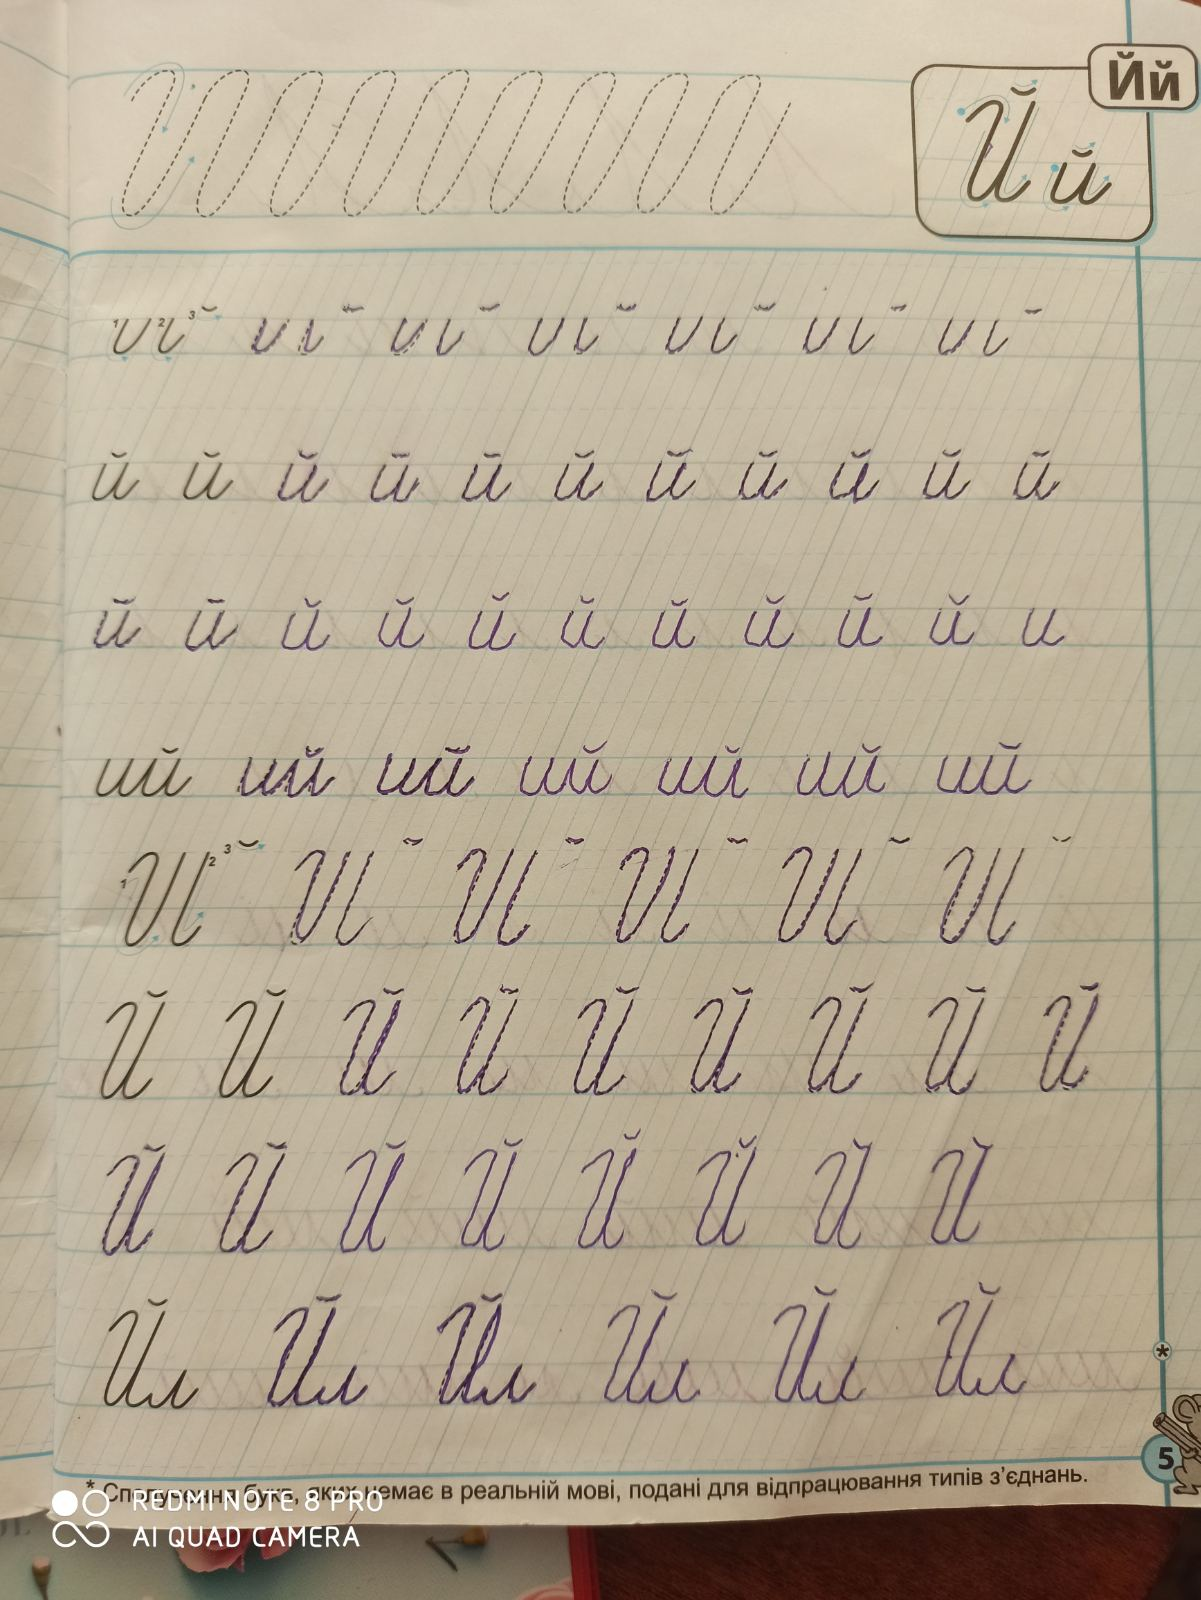 Йй
Й й
1 2 3
й й й й й й й й й й й
й й й й й й й й й й и
ий ий ий ий ий ий ий
1 2 3
Й Й Й Й Й Й Й Й Й
Й Й Й Й Й Й Й Й
Йл Йл Йл Йл Йл Йл
*
5
* Сполучення букв, яких немає в реальній мові, подані для відпрацювання типів з'єднань.
REDMI NOTE 8 PRO
AI QUAD CAMERA